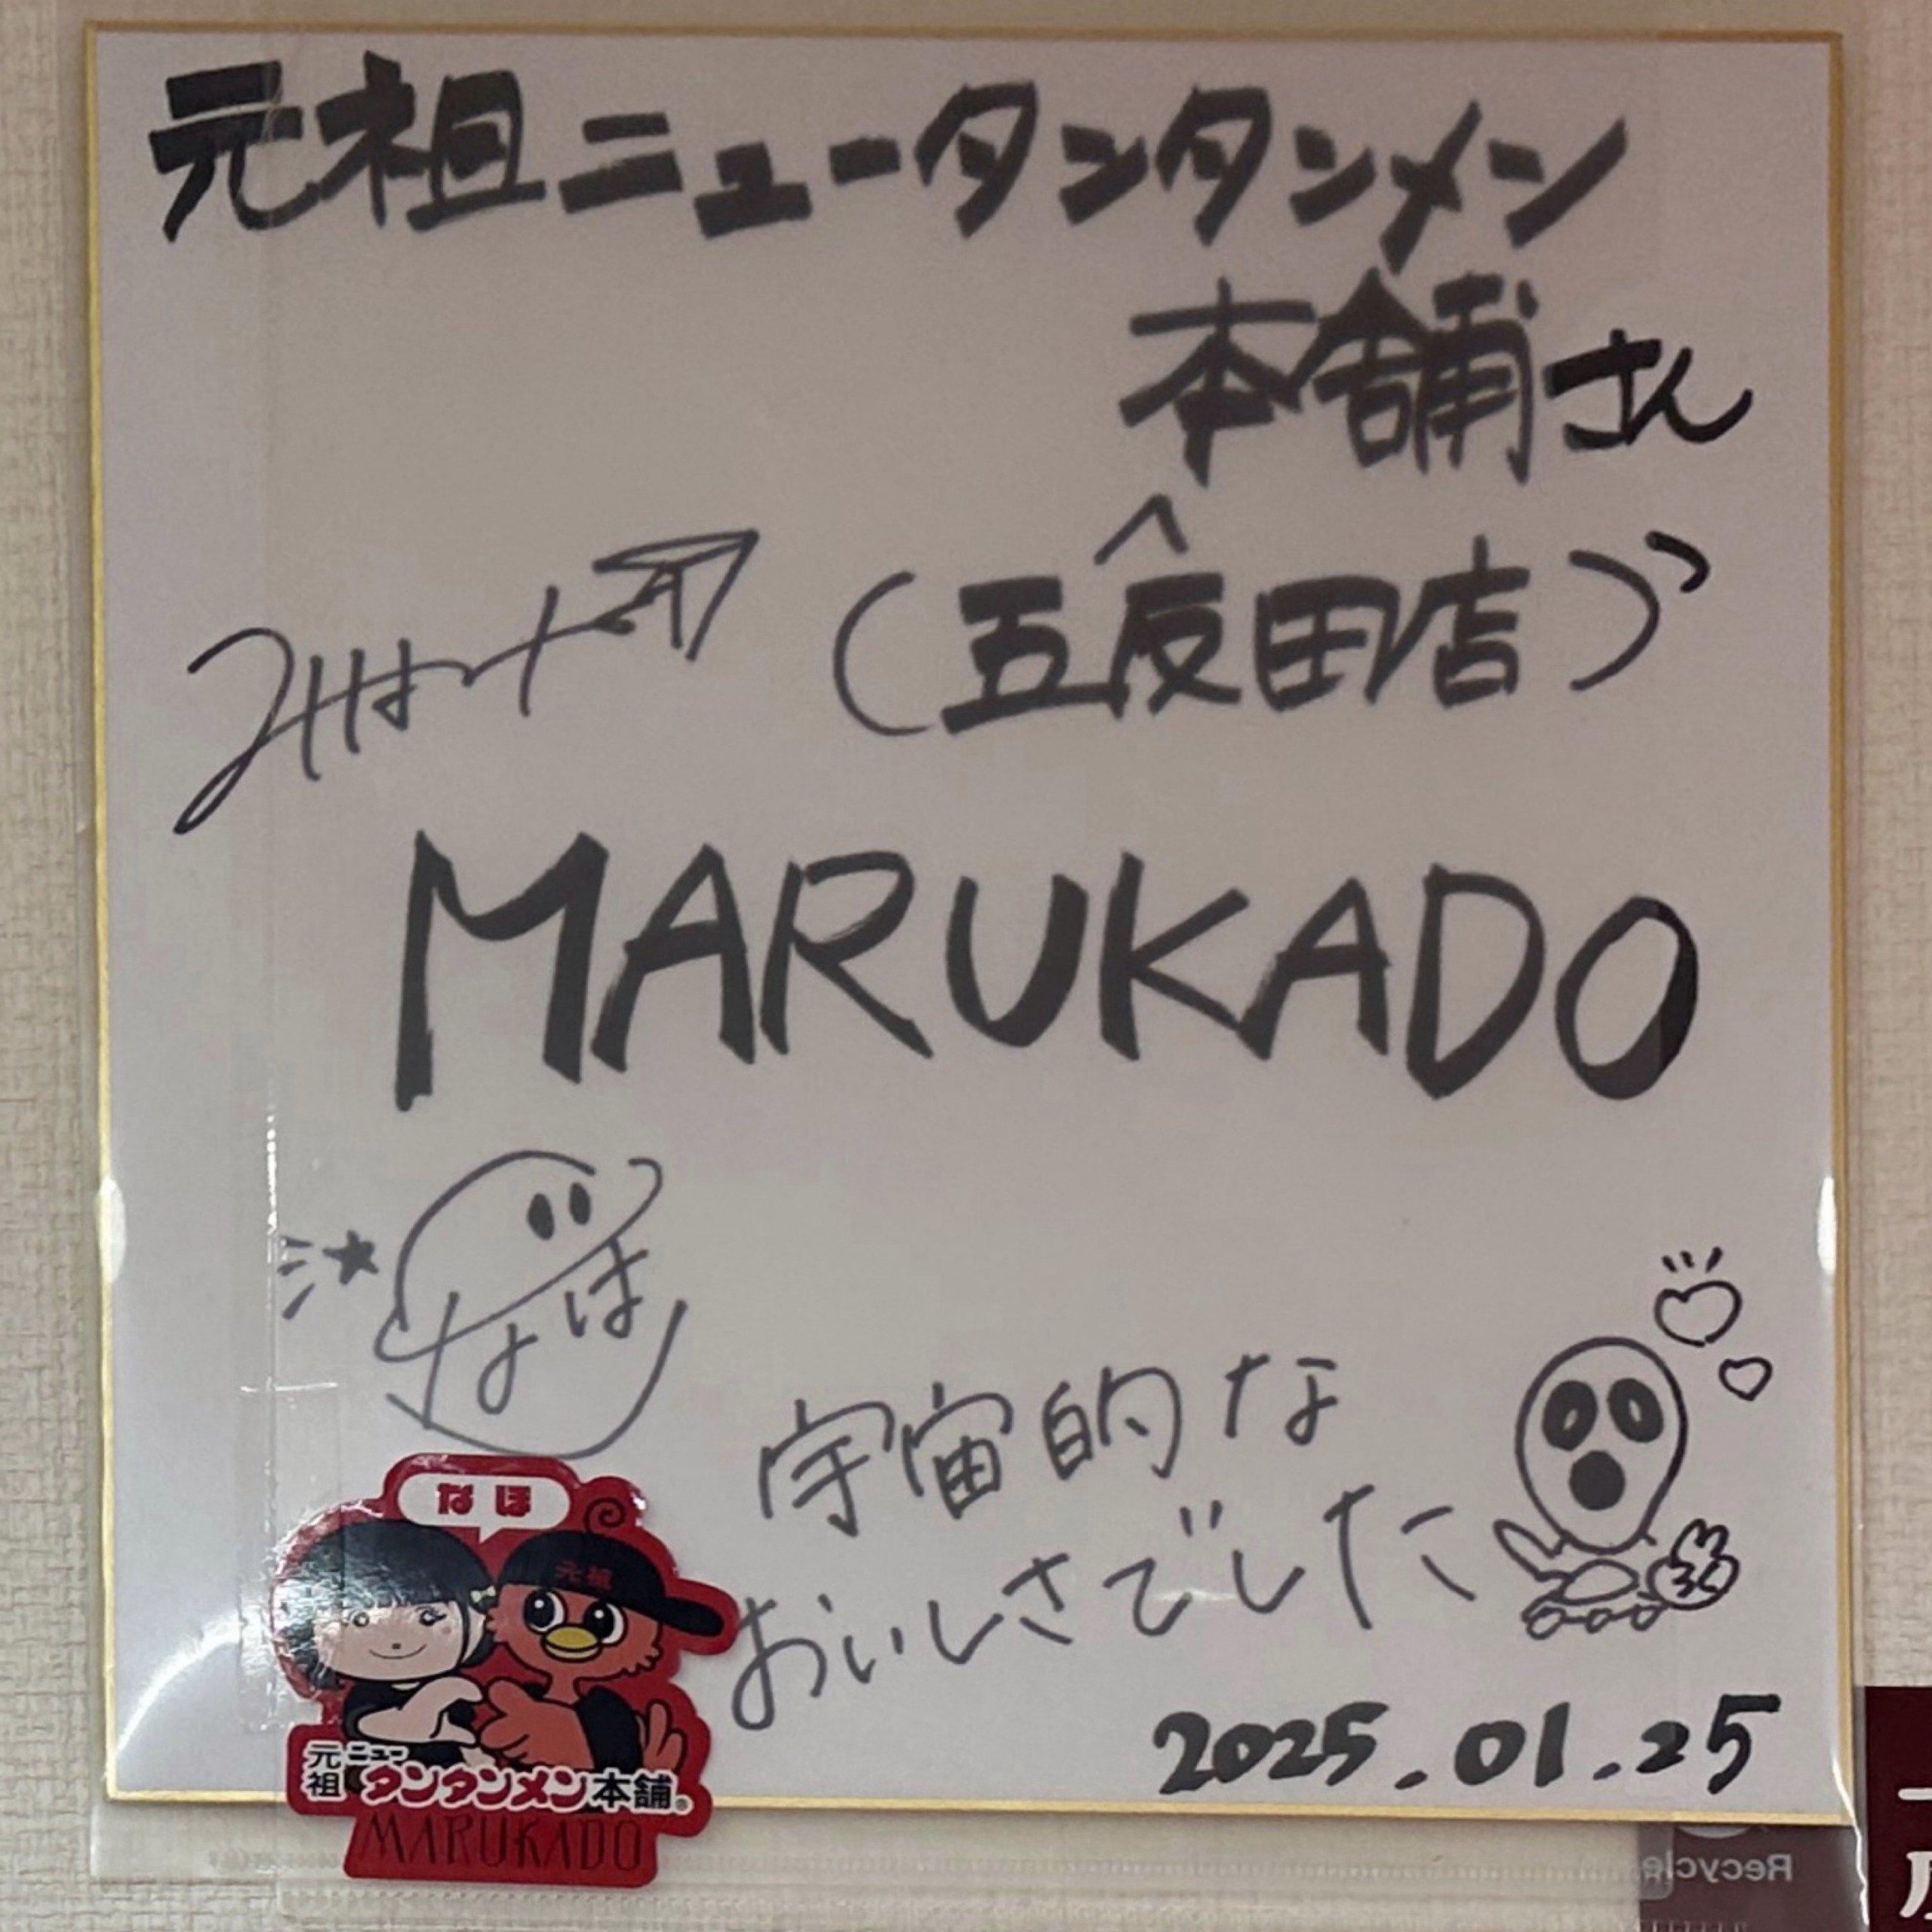 元祖ニュータンタンメン
本舗さん
(五反田店)
MARUKADO
なほ
宇宙的な
おいしさでした
2025.01.25
なほ
元祖
元祖ニュータンタンメン本舗®
MARUKADO
Recycle